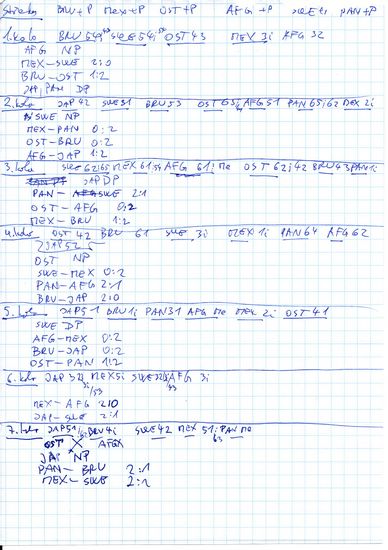 BRU+P MEX+P OST+P AFG+P SWE+i PAN+P
1. kolo BRU 54 SWE 54i OST 43 MEX 3i AFG 32
AFG NP
MEX-SWE 2:0
BRU-OST 1:2
JAP, PAN DP
2. kolo JAP 42 SWE 51 BRU 53 OST 65 AFG 51 PAN 65i62 MEX 2i
SWE NP
MEX-PAN 0:2
OST-BRU 0:2
AFG-JAP 1:2
3. kolo SWE 62i65 MEX 61 AFG 61 ME OST 62i42 BRU 43 PAN 1i
JAP DP
PAN- SWE 2:1
OST-AFG 0:2
MEX-BRU 1:2
4. kolo OST 42 BRU 61 SWE 3i MEX 1i PAN 64 AFG 62
JAP 52
OST NP
SWE-MEX 0:2
PAN-AFG 2:1
BRU-JAP 2:0
5. kolo JAP 51 BRU 1i PAN 31 AFG ME MEX 2i OST 41
SWE DP
AFG-MEX 0:2
BRU-JAP 0:2
OST-PAN 1:2
6. kolo JAP 32 MEX 5i SWE AFG 3i
31/53 /43
MEX-AFG 2:0
JAP-SWE 2:1
7. kolo JAP 51 /62 BRU 4i SWE 42 MEX 51 PAN ME
63
OST X AFG X
JAP NP
PAN-BRU 2:1
MEX-SWE 2:1